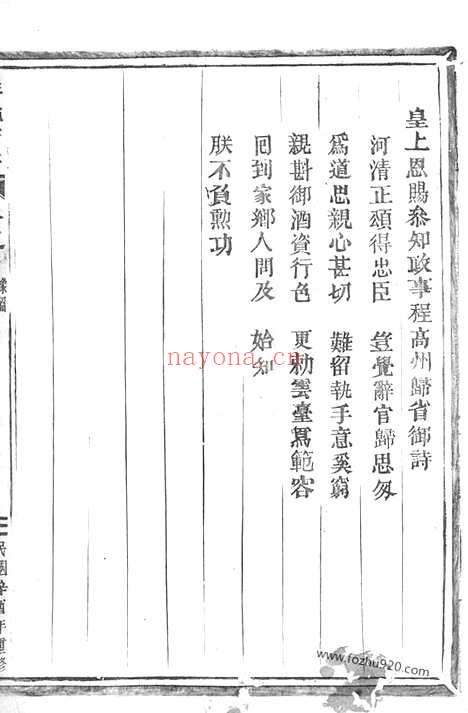 皇上恩賜參知政事程高州歸省御詩
河清正頌得忠臣　豈覺辭官歸思匆
爲道思親心甚切　難留執手意奚窮
親斟御酒資行色　更勑雲臺寫範容
回到家鄉人問及　始知
朕不負勲功
民國辛酉年重修
nayona.cn
www.fozhu920.com